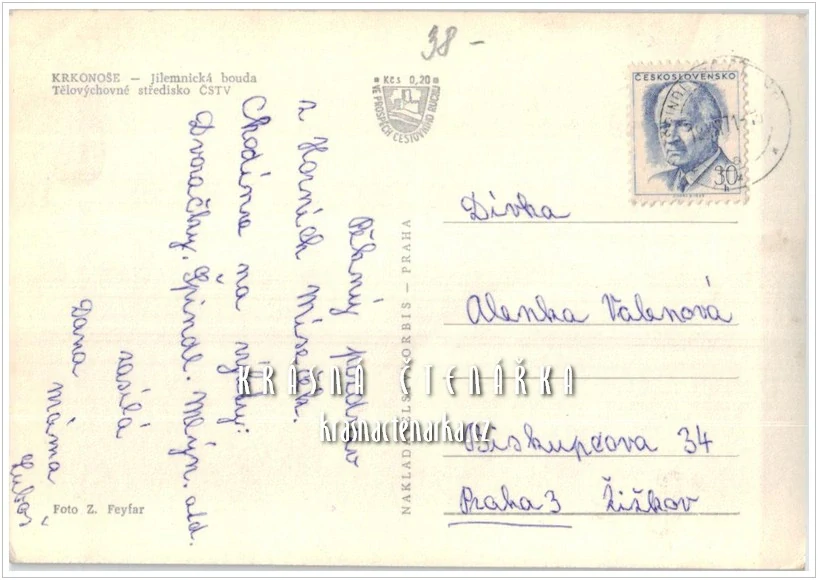 38 –
KRKONOŠE — Jilemnická bouda
Tělovýchovné středisko ČSTV
Kčs 0,20
VE PROSPĚCH CESTOVNÍHO RUCHU
ČESKOSLOVENSKO
30 h
Pěkný pozdrav
z Horních Míseček.
Chodíme na výlety:
Dvoračky, Špindl. Mlýn. atd.
zasílá
Dana máma
Luboš
NAKLADATELSTVÍ ORBIS — PRAHA
Dívka
Alenka Valenová
Biskupcova 34
Praha 3 Žižkov
Foto Z. Feyfar
KRÁSNÁ ČTENÁŘKA
krasnactenarka.cz